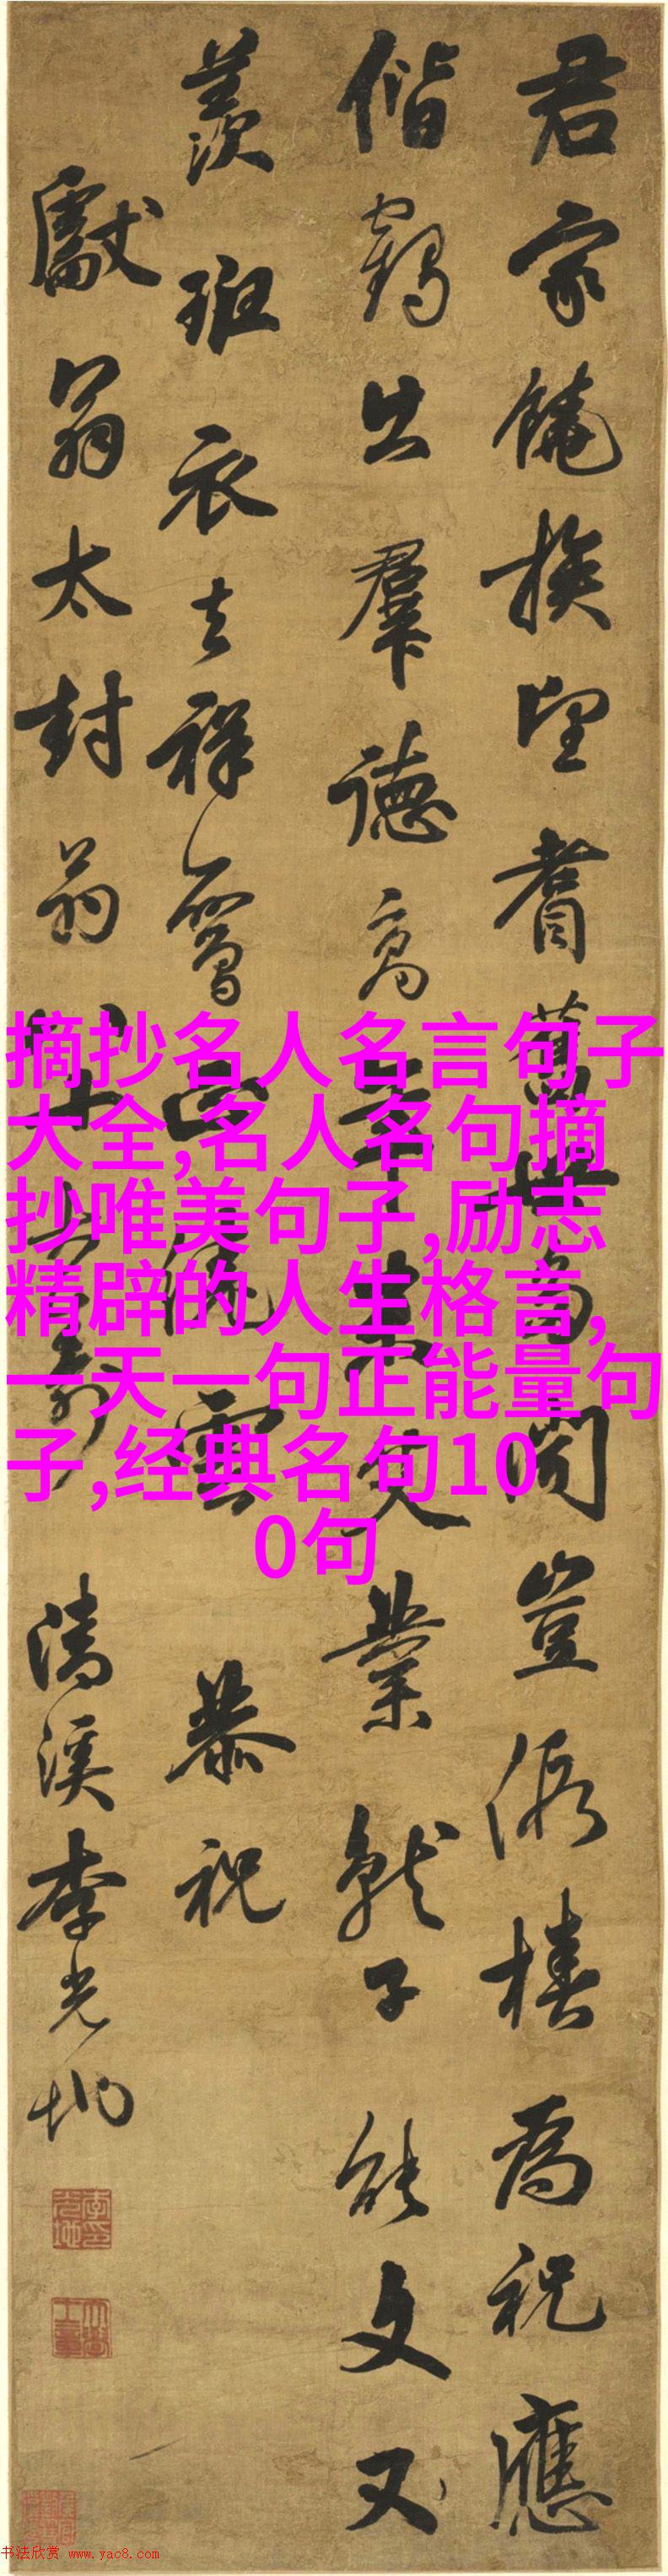 君家饒族望耆舊世聞豈假椿為祝應
偕鶴出羣德高年艾業就子能文又
羨班衣去祥鸞正雲 恭祝
獻翁太封翁 清溪李光地
摘抄名人名言句子
大全,名人名句摘
抄唯美句子,励志
精辟的人生格言,
一天一句正能量句
子,经典名句10
0句
李光地
书法欣赏 www.yac8.com